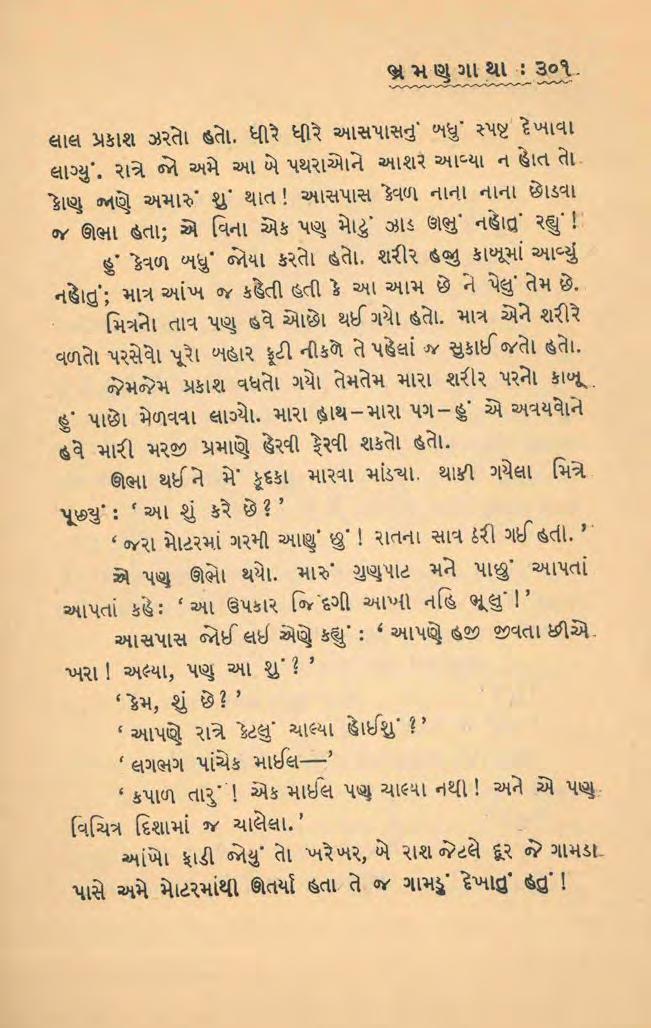 ભ્રમણગાથા : ૩૦૧
લાલ પ્રકાશ ઝરતો હતો. ધીરે ધીરે આસપાસનું બધું સ્પષ્ટ દેખાવા
લાગ્યું. રાત્રે જો અમે આ બે પથરાઓને આશરે આવ્યા ન હોત તો
કોણ જાણે અમારું શું થાત! આસપાસ કેવળ નાના નાના છોડવા
જ ઊભા હતા; એ વિના એક પણ મોટું ઝાડ ઊભું નહોતું રહ્યું!
હું કેવળ બધું જોયા કરતો હતો. શરીર હજુ કાબૂમાં આવ્યું
નહોતું; માત્ર આંખ જ કહેતી હતી કે આ આમ છે ને પેલું તેમ છે.
મિત્રનો તાવ પણ હવે ઓછો થઈ ગયો હતો. માત્ર એને શરીરે
વળતો પરસેવો પૂરો બહાર ફૂટી નીકળે તે પહેલાં જ સુકાઈ જતો હતો.
જેમજેમ પ્રકાશ વધતો ગયો તેમતેમ મારા શરીર પરનો કાબૂ
હું પાછો મેળવવા લાગ્યો. મારા હાથ–મારા પગ–હું એ અવયવોને
હવે મારી મરજી પ્રમાણે હેરવી ફેરવી શકતો હતો.
ઊભા થઈને મેં કૂદકા મારવા માંડ્યા. થાકી ગયેલા મિત્રે
પૂછ્યું : ‘આ શું કરે છે?’
‘જરા મોટરમાં ગરમી આણું છું! રાતના સાવ ઠરી ગઈ હતી.’
એ પણ ઊભો થયો. મારું ગુણપાટ મને પાછું આપતાં
આપતાં કહે: ‘આ ઉપકાર જિંદગી આખી નહિ ભૂલું!’
આસપાસ જોઈ લઈ એણે કહ્યું : ‘આપણે હજી જીવતા છીએ
ખરા! અલ્યા, પણ આ શું?’
‘કેમ, શું છે?’
‘આપણે રાત્રે કેટલું ચાલ્યા હોઈશું?’
‘લગભગ પાંચેક માઈલ—’
‘કપાળ તારું! એક માઈલ પણ ચાલ્યા નથી! અને એ પણ
વિચિત્ર દિશામાં જ ચાલેલા.’
આંખો ફાડી જોયું તો ખરેખર, બે રાશ જેટલે દૂર જે ગામડા
પાસે અમે મોટરમાંથી ઊતર્યા હતા તે જ ગામડું દેખાતું હતું!